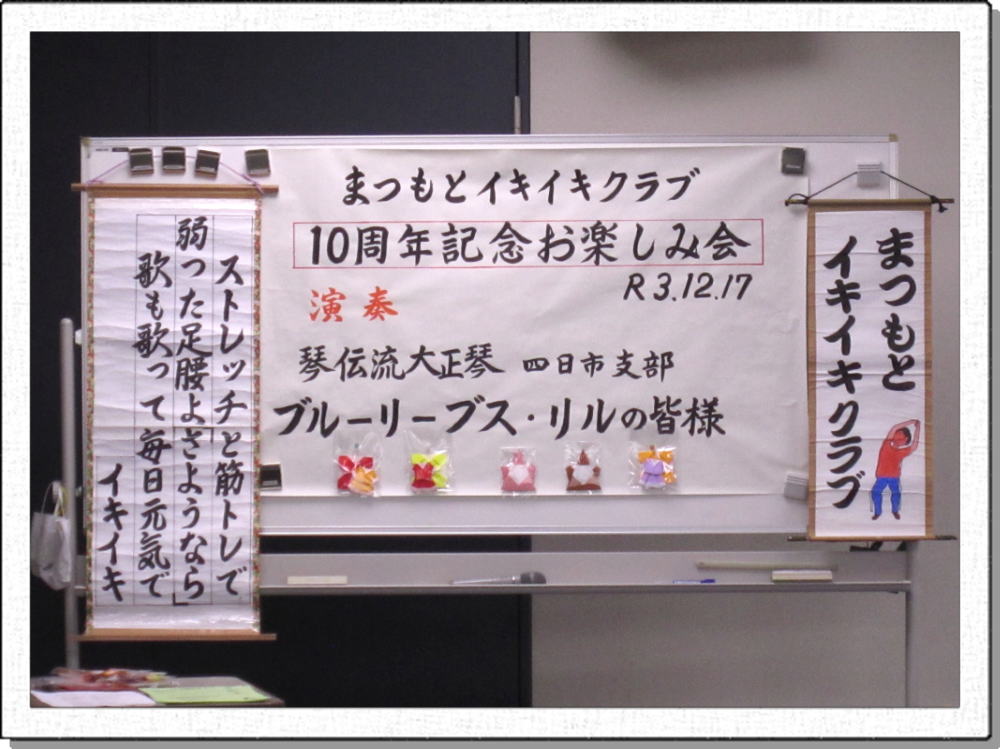 まつもとイキイキクラブ
10周年記念お楽しみ会
R3.12.17
演奏
琴伝流大正琴 四日市支部
ブルーリーブス・リルの皆様
まつもと
イキイキクラブ
ストレッチと筋トレで
弱った足腰よさようなら」
歌も歌って毎日元気で
イキイキ